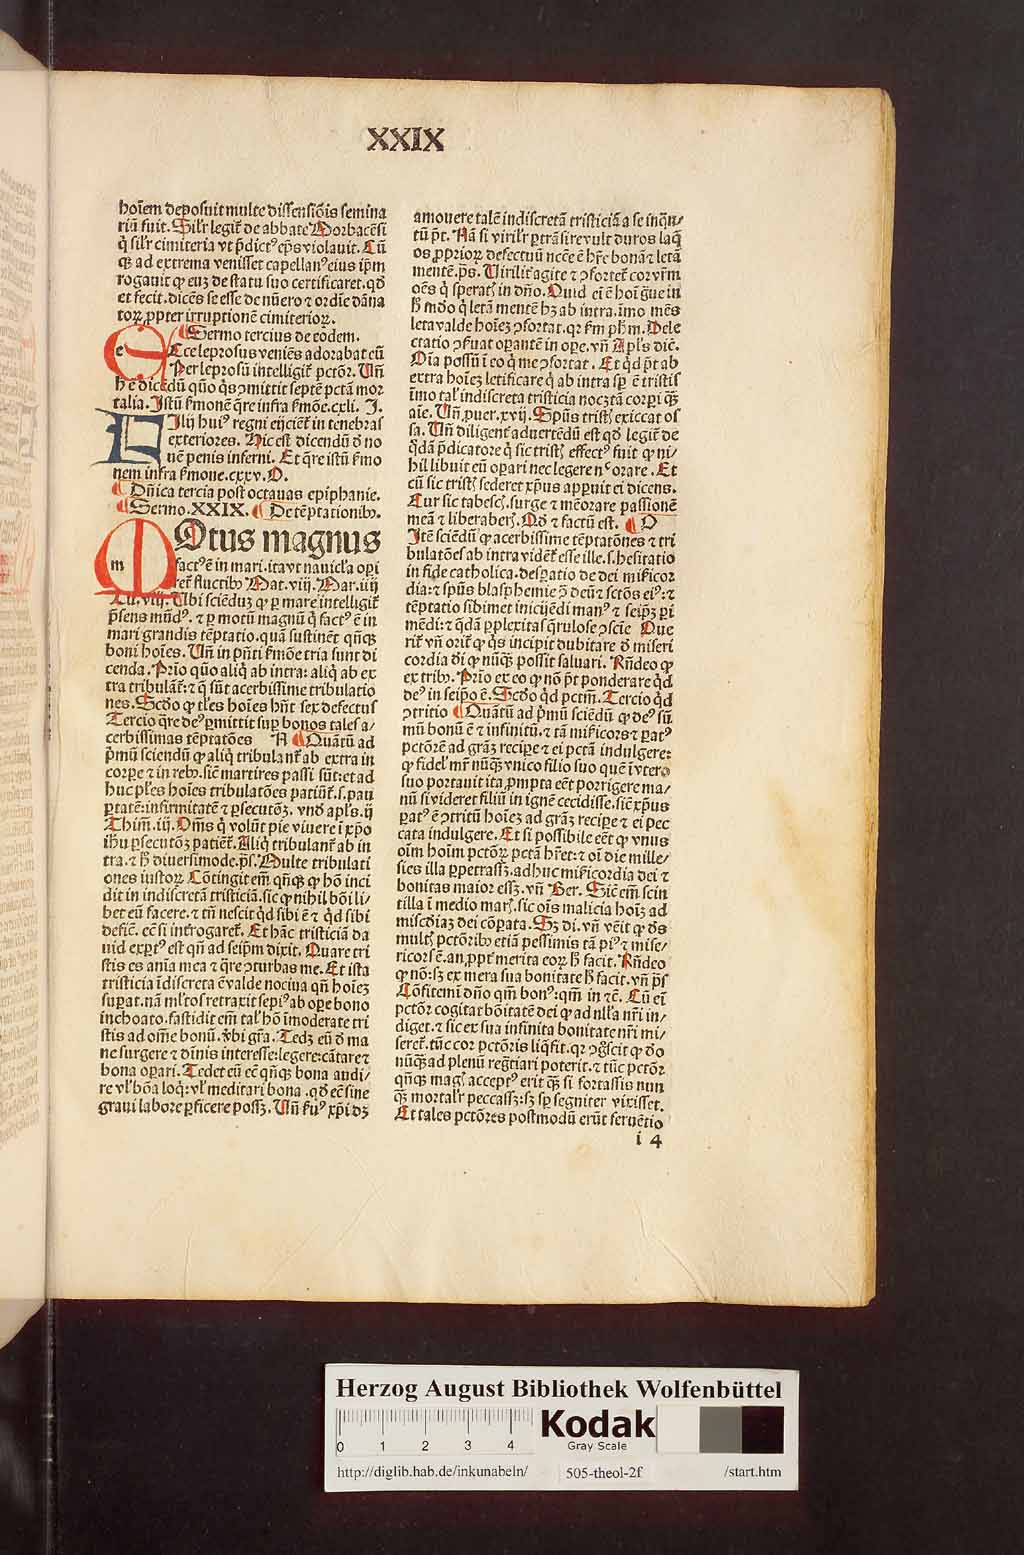 XXIX
hoīem deposuit multe dissensiōis semina
riū fuit. Silr legit̄ de abbate Morbacēsi
q̄ silr cimiteria vt p̄dictꝰ ep̄s violauit. Cū
qȝ ad extrema venisset capellanꝰ eius ip̄m
rogauit ꝙ euȝ de statu suo certificaret. qḋ
et fecit. dicēs se esse de nūero ⁊ ordīe dāna
toꝝ ꝓpter irruptionē cimiterioꝝ.
¶ Sermo tercius de eodem.
e Ecce leprosus veniēs adorabat eū
Per leprosū intelligit̄ pctōr. Uñ
h̄ ē dicēdū quō q̄s ꝯmittit septē pctā mor
talia. Istū s̄monē q̄re infra s̄mōe.cxli. I.
Filij huiꝰ regni eijciēt̄ in tenebras
exteriores. Hic est dicendū ḋ no
uē penis inferni. Et q̄re istū s̄mo
nem infra s̄mone.cxxv.O.
¶ Dn̄ica tercia post octauas epiphanie.
¶ Sermo.XXIX. ¶ De tēptationibꝰ.
m Motus magnus
factꝰ ē in mari.ita vt nauicl̓a opi
ret̄ fluctibꝰ Mat.viij. Mar.iiij
Lu.viij. Ubi sciēduȝ ꝙ ꝑ mare intelligit̄
p̄sens mūdꝰ. ⁊ ꝑ motū magnū q̄ factꝰ ē in
mari grandis tēptatio.quā sustinēt qn̄qȝ
boni hoīes. Uñ in pn̄ti s̄mōe tria sunt di
cenda. Prīo quō aliq̄ ab intra: aliq̄ ab ex
tra tribulāt̄: ⁊ q̄ sūt acerbissime tribulatio
nes. Scḋo ꝙ tl̓es hoīes hn̄t sex defectus
Tercio q̄re deꝰ ꝑmittit suꝑ bonos tales a/
cerbissimas tēptatōes A ¶ Quātū ad
p̄mū sciendū ꝙ aliq̄ tribulant̄ ab extra in
corpe ⁊ in rebꝰ.sic̄ martires passi sūt: et ad
huc pl̓es hoīes tribulatōes patiūt̄.s.pau
ꝑtatē: infirmitatē ⁊ ꝑsecutōȝ. vnḋ apl̓s.ij
Thim̄.iij. Om̄s q̄ volūt pie viuere ī xp̄o
ih̄u ꝑsecutōȝ patiēt̄. Aliq̄ tribulant̄ ab in
tra.⁊ h̄ diuersimode.p̄s. Multe tribulati
ones iustoꝝ Cōtingit em̄ qn̄qȝ ꝙ hō inci
dit in indiscretā tristiciā.sic ꝙ nihil bōi li/
bet eū facere.⁊ tn̄ nescit qḋ sibi ē ⁊ qḋ sibi
defic̄. ec̄ si introgaret̄. Et hāc tristiciā da
uid exꝑtꝰ est qn̄ ad seip̄m dixit. Quare tri
stis es anīa mea ⁊ q̄re ꝯturbas me. Et ista
tristicia īdiscreta ē valde nociua qn̄ hoīeȝ
supat.nā ml̓tos retraxit sepiꝰ ab ope bono
inchoato.fastidit em̄ tal̓ hō īmoderate tri
stis ad om̄e bonū. v̄bi gr̄a. Tedȝ eū ḋ ma
ne surgere ⁊ dīnis interesse: legere: cātare ⁊
bona opari. Tedet eū ec̄ qn̄qȝ bona audi/
re vl̓ bōa loq̄: vl̓ meditari bona.qḋ ec̄ sine
graui labore ꝑficere possȝ. Uñ s̄uꝰ xp̄i dȝ
amouere talē indiscretā tristiciā a se inq̄n/
tū p̄t. Nā si virilr ꝑtrāsire vult duros laq̄
os ꝓprioꝝ defectuū nc̄ce ē hr̄e bonā ⁊ letā
mentē.p̄s. Uirilit̄ agite ⁊ ꝯfortet̄ cor vr̄m
oēs q̄ sperat̄ꝭ in dn̄o. Quid eī ē hoī g̓ue in
h̄ mḋo q̄ letā mentē hȝ ab intra.īmo mēs
leta valde hoīeȝ ꝯfortat.qr s̄m ph̓m. Dele
ctatio ꝯs̄uat opantē in ope.vñ Apl̓s dic̄.
Oīa possū ī eo q̄ me ꝯfortat. Et qḋ p̄t ab
extra hoīeȝ letificare q̄ ab intra sp̄ ē tristis
īmo tal̓ indiscreta tristicia nocȝ tā corpi qȝ
aīe. Uñ ꝓuer.xvij. Spūs trist̄ꝭ exiccat os
sa. Uñ diligent̄ aduertēdū est qḋ legit̄ de
q̄dā p̄dicatore q̄ sic trist̄ꝭ effectꝰ fuit ꝙ ni/
hil libuit eū opari nec legere nec orare. Et
cū sic trist̄ꝭ sederet xp̄us apparuit ei dicens.
Cur sic tabesc̄ꝭ.surge ⁊ mēorare passionē
meā ⁊ liberaber̄ꝭ. Qḋ ⁊ factū est. ¶ O
Itē sciēdū ꝙ acerbissime tēptatōnes ⁊ tri
bulatōes ab intra vidēt̄ esse ille.s.hesitatio
in fide catholica.despatio de dei mīsicor
dia: ⁊ spūs blasphemie ꝯ̄ deū ⁊ sctōs eiꝰ: ⁊
tēptatio sibimet inicijēdi manꝰ ⁊ seipȝ ꝑi
mēdi: ⁊ q̄dā ꝑplexitas q̄rulose ꝯscīe Que
rit̄ vñ orit̄ ꝙ q̄s incipit dubitare ḋ miseri
cordia dī ꝙ nūqȝ possit saluari. Rn̄deo ꝙ
ex tribꝰ. Prīo ex eo ꝙ nō p̄t ponderare qḋ
deꝰ in seip̄o ē. Scḋo qḋ pctm̄. Tercio qḋ
ꝯtritio ¶ Quātū ad p̄mū sciēdū ꝙ deꝰ sū
mū bonū ē ⁊ infinitū.⁊ tā mīsicors ⁊ paratꝰ
pctōrē ad gr̄aȝ recipe ⁊ ei pctā indulgere:
ꝙ fidel̓ mr̄ nūqȝ vnico filio suo quē ī vtero
suo portauit ita ꝓmpta eēt porrigere ma/
nū si videret filiū in ignē cecidisse.sic̄ xp̄us
paratꝰ ē ꝯtritū hoīeȝ ad gr̄aȝ recipe ⁊ ei pec
cata indulgere. Et si possibile eēt ꝙ vnus
oīm hoīm pctōꝝ pctā hr̄et: ⁊ oī die mille/
sies illa ꝑpetrassȝ.adhuc mīsicordia dei ⁊
bonitas maior essȝ.vñ Ber. Sic̄ em̄ scin
tilla ī medio mar̄ꝭ.sic oīs malicia hoīȝ ad
miscḋiaȝ dei cōpata. Sȝ dī.vñ veīt ꝙ ds̄
mult̄ꝭ pctōribꝰ etiā pessimis tā piꝰ ⁊ mise/
ricors ē.an ꝓpt̄ merita eoꝝ h̄ facit. Rn̄deo
ꝙ nō: sȝ ex mera sua bonitate h̄ facit.vñ p̄s
Cōfitemī dn̄o qm̄ bonꝰ: qm̄ in ⁊c̄. Cū eī
pctōr cogitat bōitatē dei ꝙ ad nll̓a nr̄i in/
diget.⁊ sic ex sua infinita bonitate nr̄i mi/
seret̄.tūc cor pctōris liq̄fit.qr ꝯgsc̄it ꝙ dō
nūqȝ ad plenū regr̄tiari poterit.⁊ tūc pctōr
qn̄qȝ mag̓ꝭ acceptꝰ erit qȝ si fortassis nun
qȝ mortalr̄ peccassȝ: sȝ sp̄ segniter vixisset.
Et tales pctōres postmodū erūt feruētio
i 4
Herzog August Bibliothek Wolfenbüttel
0 1 2 3 4
Kodak
Gray Scale
http://diglib.hab.de/inkunabeln/ 505-theol-2f /start.htm